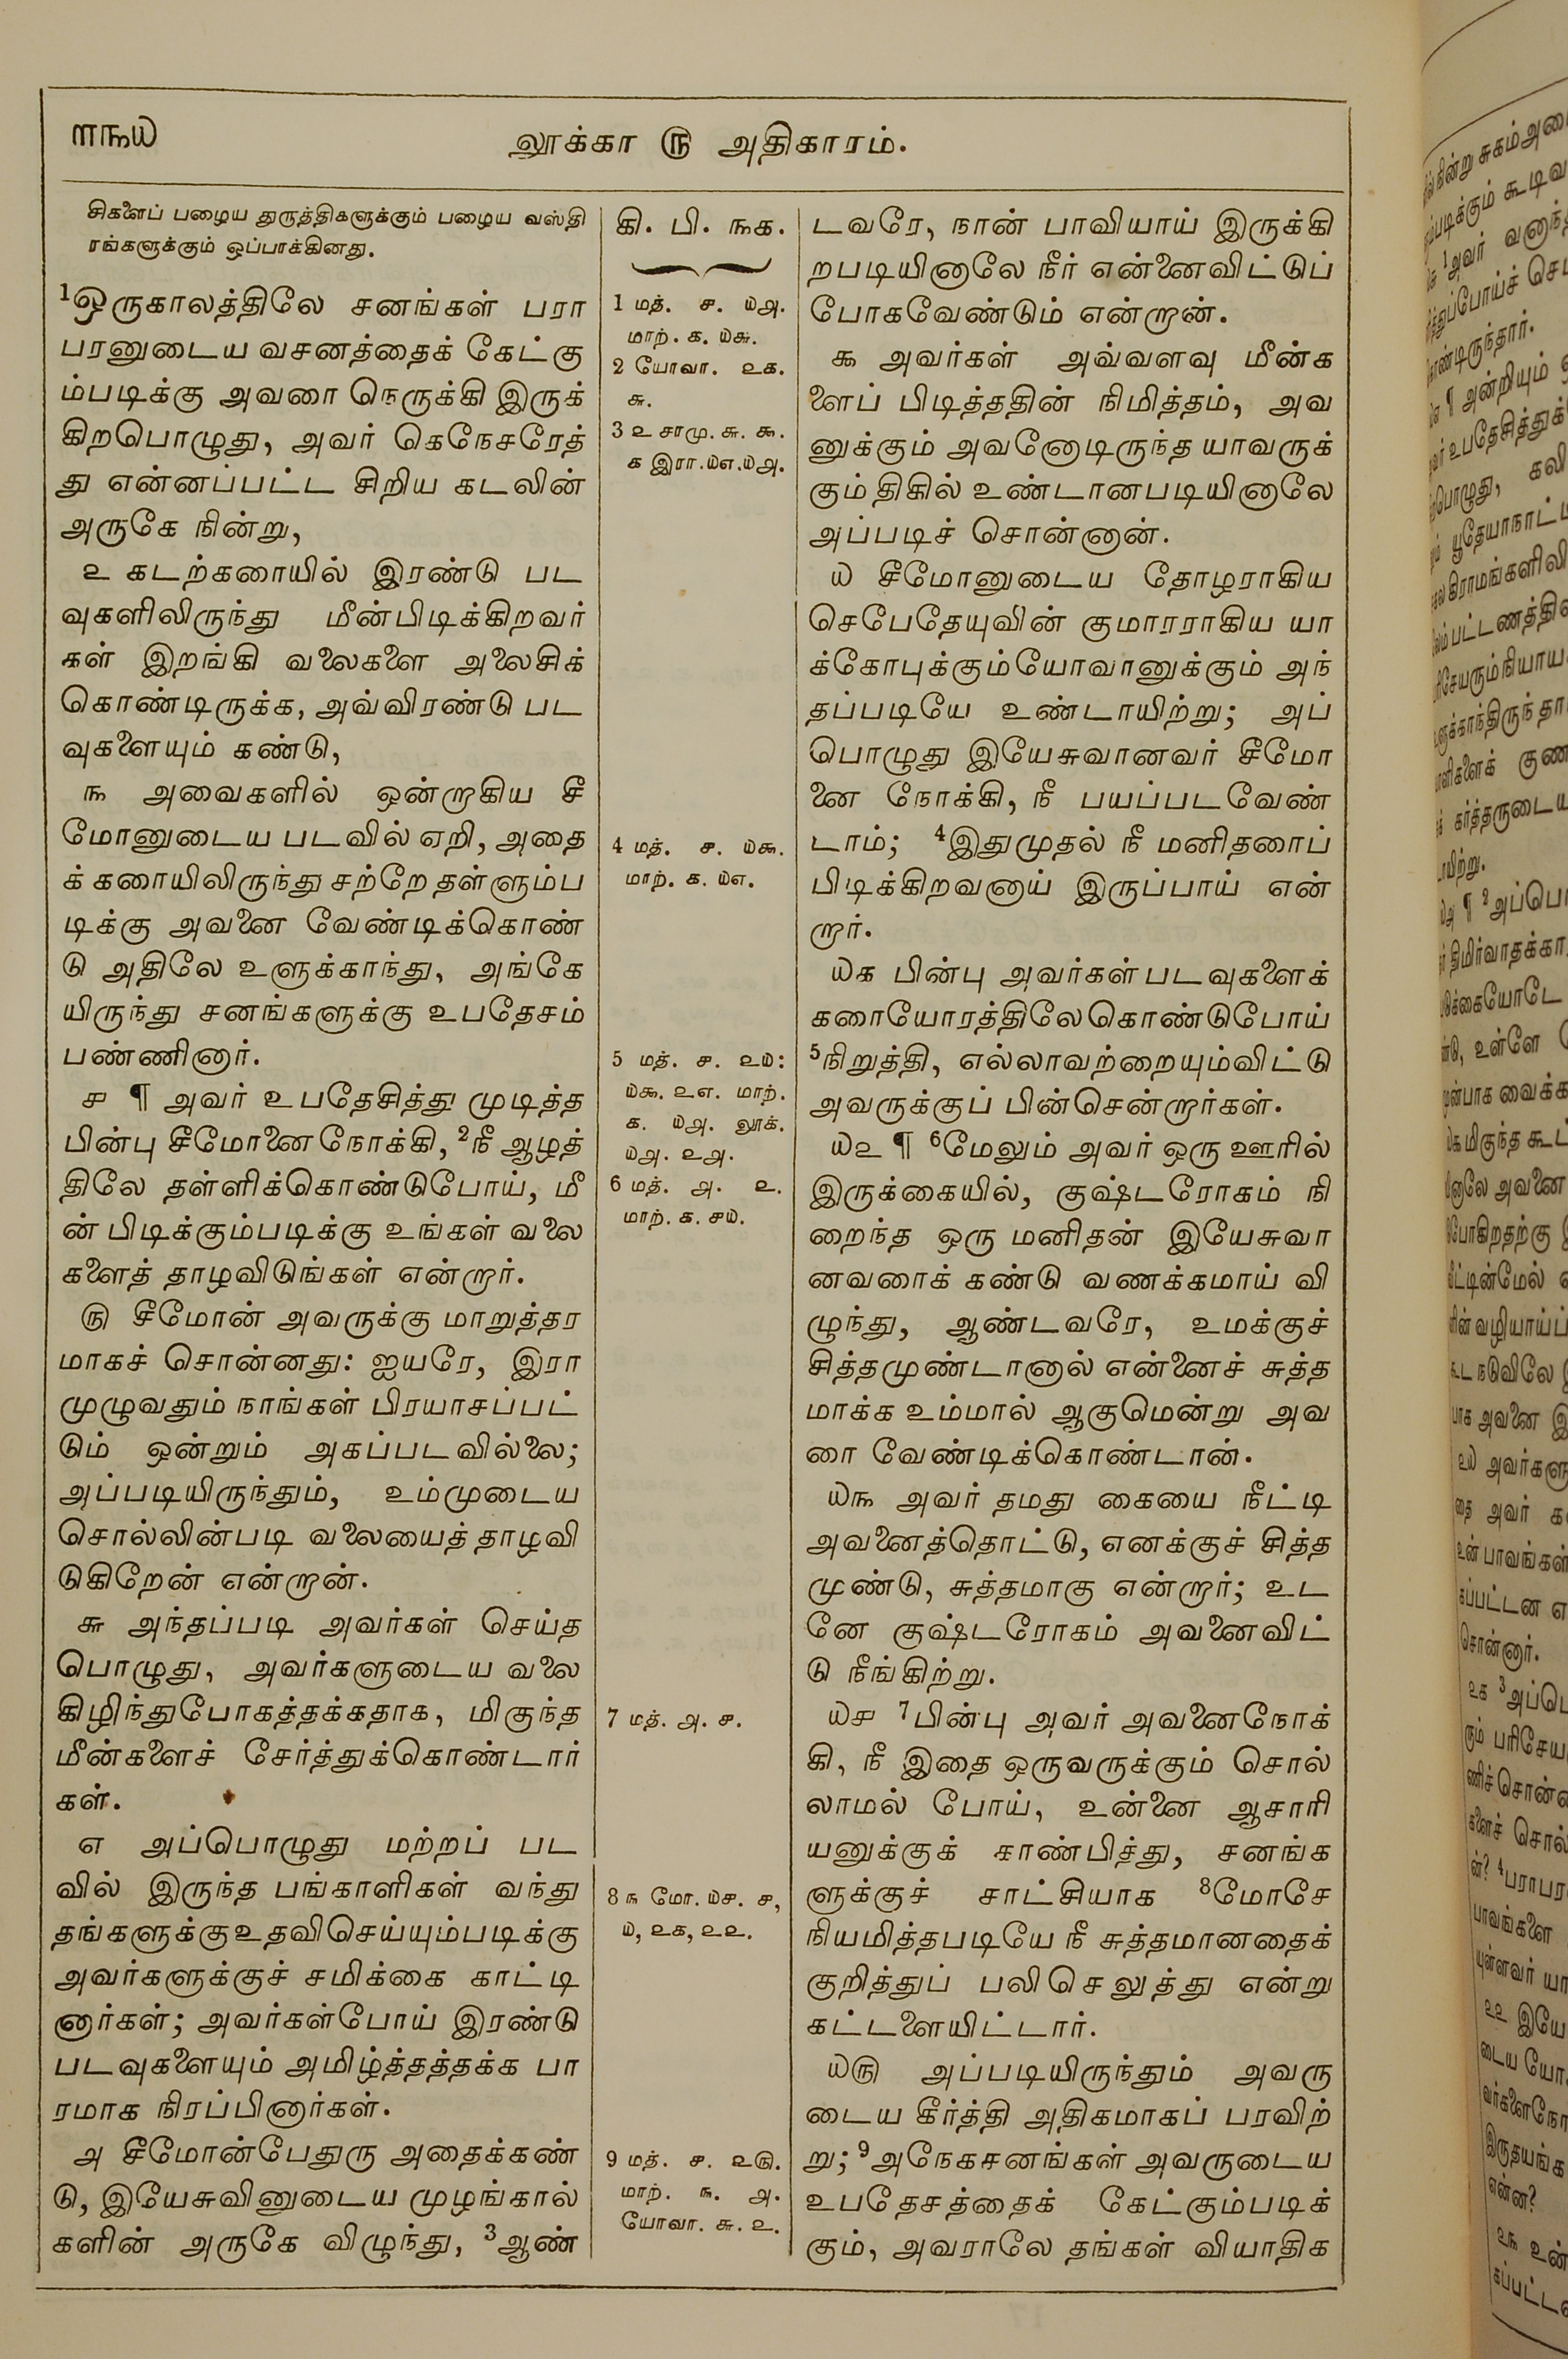 ௱௩௰
லூக்கா ௫ அதிகாரம்.
சிகளைப் பழைய துருத்திகளுக்கும் பழைய வஸ்தி
ரங்களுக்கும் ஒப்பாக்கினது.
1ஒருகாலத்திலே சனங்கள் பரா
பரனுடைய வசனத்தைக் கேட்கு
ம்படிக்கு அவரை நெருக்கி இருக்
கிறபொழுது, அவர் கெநேசரேத்
து என்னப்பட்ட சிறிய கடலின்
அருகே நின்று,
௨ கடற்கரையில் இரண்டு பட
வுகளிலிருந்து மீன்பிடிக்கிறவர்
கள் இறங்கி வலைகளை அலைசிக்
கொண்டிருக்க, அவ்விரண்டு பட
வுகளையும் கண்டு,
௩ அவைகளில் ஒன்றாகிய சீ
மோனுடைய படவில் ஏறி, அதை
க் கரையிலிருந்து சற்றே தள்ளும்ப
டிக்கு அவனை வேண்டிக்கொண்
டு அதிலே உளுக்காந்து, அங்கே
யிருந்து சனங்களுக்கு உபதேசம்
பண்ணினார்.
௪ ¶ அவர் உபதேசித்து முடித்த
பின்பு சீமோனைநோக்கி, 2நீ ஆழத்
திலே தள்ளிக்கொண்டுபோய், மீ
ன் பிடிக்கும்படிக்கு உங்கள் வலை
களைத் தாழவிடுங்கள் என்றார்.
௫ சீமோன் அவருக்கு மாறுத்தர
மாகச் சொன்னது: ஐயரே, இரா
முழுவதும் நாங்கள் பிரயாசப்பட்
டும் ஒன்றும் அகப்படவில்லை;
அப்படியிருந்தும், உம்முடைய
சொல்லின்படி வலையைத் தாழவி
டுகிறேன் என்றான்.
௬ அந்தப்படி அவர்கள் செய்த
பொழுது, அவர்களுடைய வலை
கிழிந்துபோகத்தக்கதாக, மிகுந்த
மீன்களைச் சேர்த்துக்கொண்டார்
கள்.
௭ அப்பொழுது மற்றப் பட
வில் இருந்த பங்காளிகள் வந்து
தங்களுக்கு உதவிசெய்யும்படிக்கு
அவர்களுக்குச் சமிக்கை காட்டி
னார்கள்; அவர்கள்போய் இரண்டு
படவுகளையும் அமிழ்த்தத்தக்க பா
ரமாக நிரப்பினார்கள்.
௮ சீமோன்பேதுரு அதைக்கண்
டு, இயேசுவினுடைய முழங்கால்
களின் அருகே விழுந்து, 3ஆண்
கி. பி. ௩௧.
1 மத். ௪. ௰௮.
மாற். ௧. ௰௬.
2 யோவா. ௨௧.
௬.
3 ௨ சாமு. ௬. ௯.
௧ இரா.௰௭.௰௮.
4 மத். ௪. ௰௯.
மாற். ௧. ௰௭.
5 மத். ௪. ௨௰:
௰௯. ௨௭. மாற்.
௧. ௰௮. லூக்.
௰௮. ௨௮.
6 மத். ௮. ௨.
மாற். ௧. ௪௰.
7 மத். ௮. ௪.
8 ௩ மோ. ௰௪. ௪,
௰, ௨௧, ௨௨.
9 மத். ௪. ௨௫.
மாற். ௩. ௮.
யோவா. ௬. ௨.
டவரே, நான் பாவியாய் இருக்கி
றபடியினாலே நீர் என்னைவிட்டுப்
போகவேண்டும் என்றான்.
௯ அவர்கள் அவ்வளவு மீன்க
ளைப் பிடித்ததின் நிமித்தம், அவ
னுக்கும் அவனோடிருந்த யாவருக்
கும் திகில் உண்டானபடியினாலே
அப்படிச் சொன்னான்.
௰ சீமோனுடைய தோழராகிய
செபேதேயுவின் குமாரராகிய யா
க்கோபுக்கும்யோவானுக்கும் அந்
தப்படியே உண்டாயிற்று; அப்
பொழுது இயேசுவானவர் சீமோ
னை நோக்கி, நீ பயப்படவேண்
டாம்; 4இதுமுதல் நீ மனிதரைப்
பிடிக்கிறவனாய் இருப்பாய் என்
றார்.
௰௧ பின்பு அவர்கள் படவுகளைக்
கரையோரத்திலேகொண்டுபோய்
5நிறுத்தி, எல்லாவற்றையும்விட்டு
அவருக்குப் பின்சென்றார்கள்.
௰௨ ¶ 6மேலும் அவர் ஒரு ஊரில்
இருக்கையில், குஷ்டரோகம் நி
றைந்த ஒரு மனிதன் இயேசுவா
னவரைக் கண்டு வணக்கமாய் வி
ழுந்து, ஆண்டவரே, உமக்குச்
சித்தமுண்டானால் என்னைச் சுத்த
மாக்க உம்மால் ஆகுமென்று அவ
ரை வேண்டிக்கொண்டான்.
௰௩ அவர் தமது கையை நீட்டி
அவனைத்தொட்டு, எனக்குச் சித்த
முண்டு, சுத்தமாகு என்றார்; உட
னே குஷ்டரோகம் அவனைவிட்
டு நீங்கிற்று.
௰௪ 7பின்பு அவர் அவனைநோக்
கி, நீ இதை ஒருவருக்கும் சொல்
லாமல் போய், உன்னை ஆசாரி
யனுக்குக் காண்பித்து, சனங்க
ளுக்குச் சாட்சியாக 8மோசே
நியமித்தபடியே நீ சுத்தமானதைக்
குறித்துப் பலிசெலுத்து என்று
கட்டளையிட்டார்.
௰௫ அப்படியிருந்தும் அவரு
டைய கீர்த்தி அதிகமாகப் பரவிற்
று; 9அநேகசனங்கள் அவருடைய
உபதேசத்தைக் கேட்கும்படிக்
கும், அவராலே தங்கள் வியாதிக